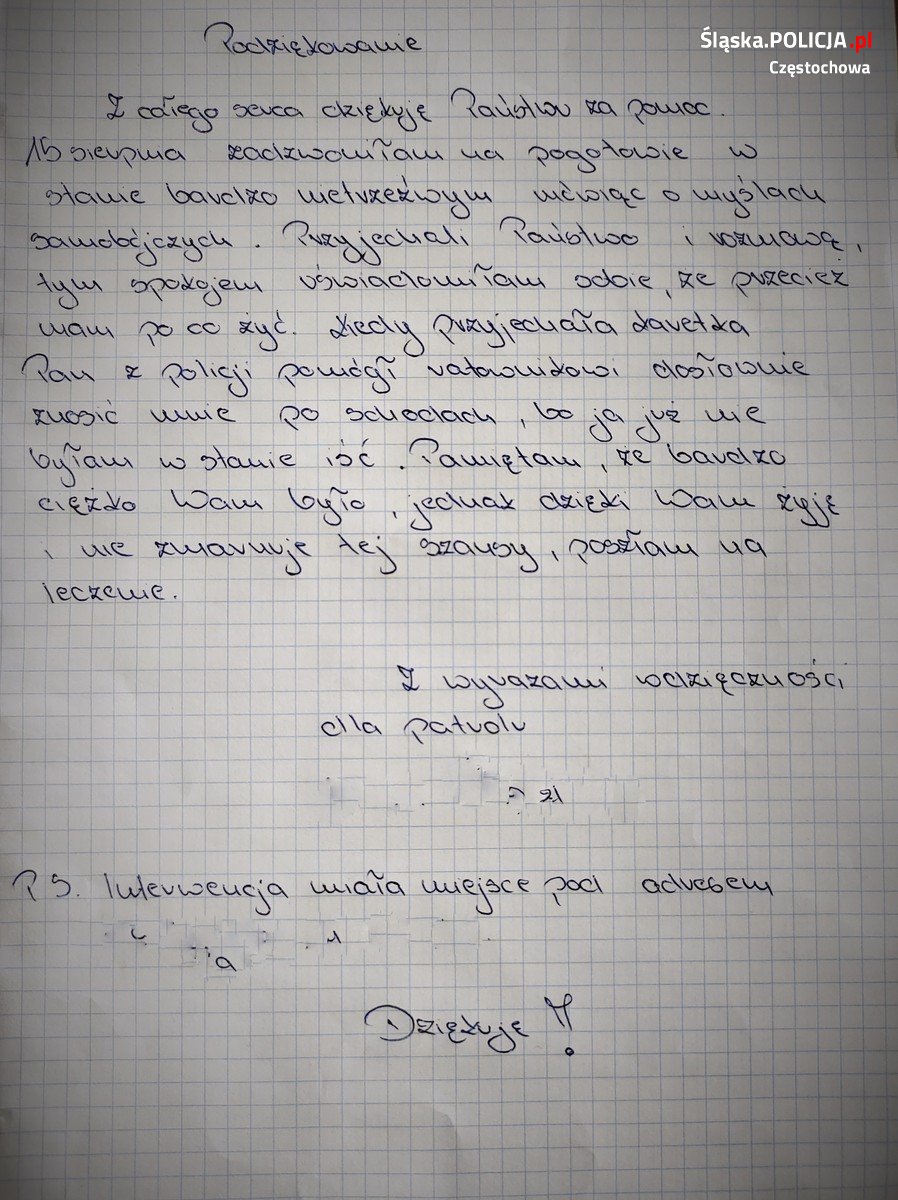 Śląska.POLICJA.pl
Częstochowa
Podziękowanie
Z całego serca dziękuję Państwu za pomoc.
15 sierpnia zadzwoniłam na pogotowie w
stanie bardzo nietrzeźwym mówiąc o myślach
samobójczych. Przyjechali Państwo i rozmową,
tym spokojem uświadomiłam sobie, że przecież
mam po co żyć. Kiedy przyjechała karetka
Pan z policji pomógł ratownikowi dosłownie
znosić mnie po schodach, bo ja już nie
byłam w stanie iść. Pamiętam, że bardzo
ciężko Wam było, jednak dzięki Wam żyję
i nie zmarnuje tej szansy, poszłam na
leczenie.
Z wyrazami wdzięczności
dla patrolu
P S. Interwencja miała miejsce pod adresem
Dziękuję !